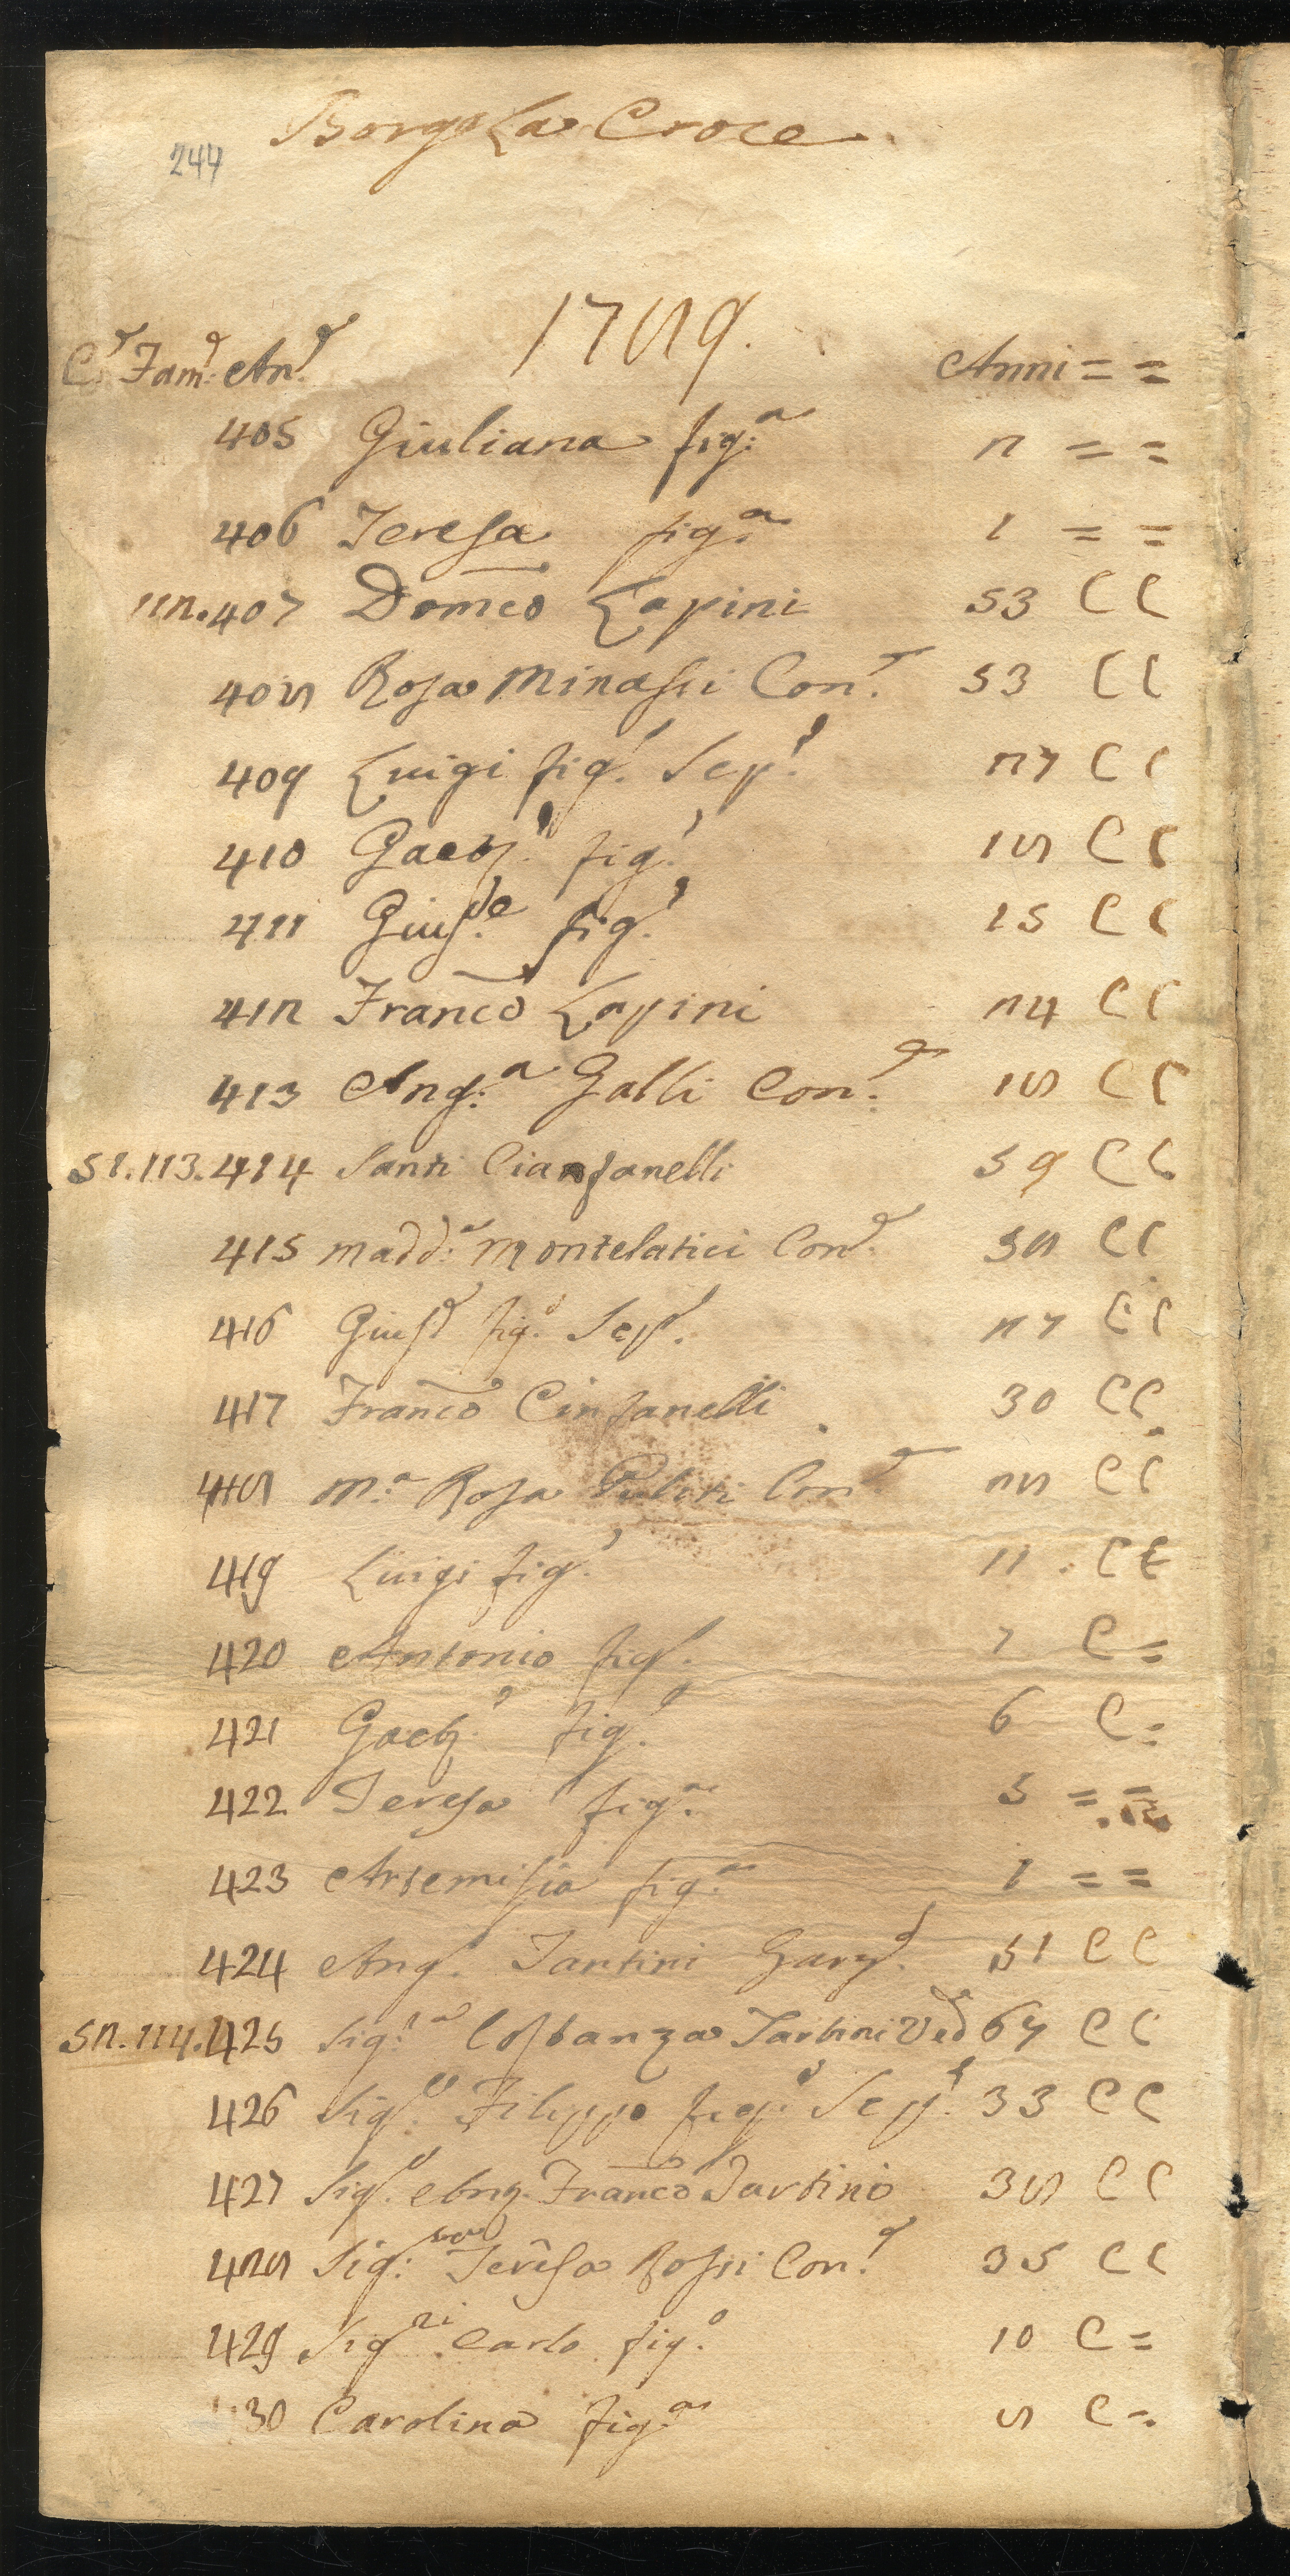 244
Borgo La Croce
1789.
C.e Fam.e An.e Anni = =
405 Giuliana fig:a 2 = =
406 Teresa fig:a 1 = =
112.407 Domco Lapini 53 C C
408 Rosa Minassi Con.e 53 C C
409 Luigi fig.o Sep.o 27 C C
410 Gaet.o fig.o 18 C C
411 Gius.e fig.o 15 C C
412 Franco Lapini 24 C C
413 Ang:a Galli Con.e 18 C C
51.113.414 Santi Cianfanelli 59 C C
415 Madd:a Montelatici Con.e 58 C C
416 Gius.e fig.o Sep.o 27 C C
417 Franco Cinfanelli 30 C C
418 M.a Rosa Con.e 28 C C
419 Luigi fig.o 11 . C C
420 Antonio fig.o 7 C =
421 Gaet.o fig.o 6 C =
422 Teresa fig.a 5 = =
423 Artemisia fig.a 1 = =
424 Ang.o Tantini Garz.e 51 C C
52.114.425 Sig.ra Costanza Tartini Ved.a 67 C C
426 Sig.e Filippo fig.o Sep.o 33 C C
427 Sig.e Ang. Franco Tartini 38 C C
428 Sig:ra Teresa Rossi Con.e 35 C C
429 Sig.ri Carlo fig.o 10 C =
430 Carolina fig.a 8 C =